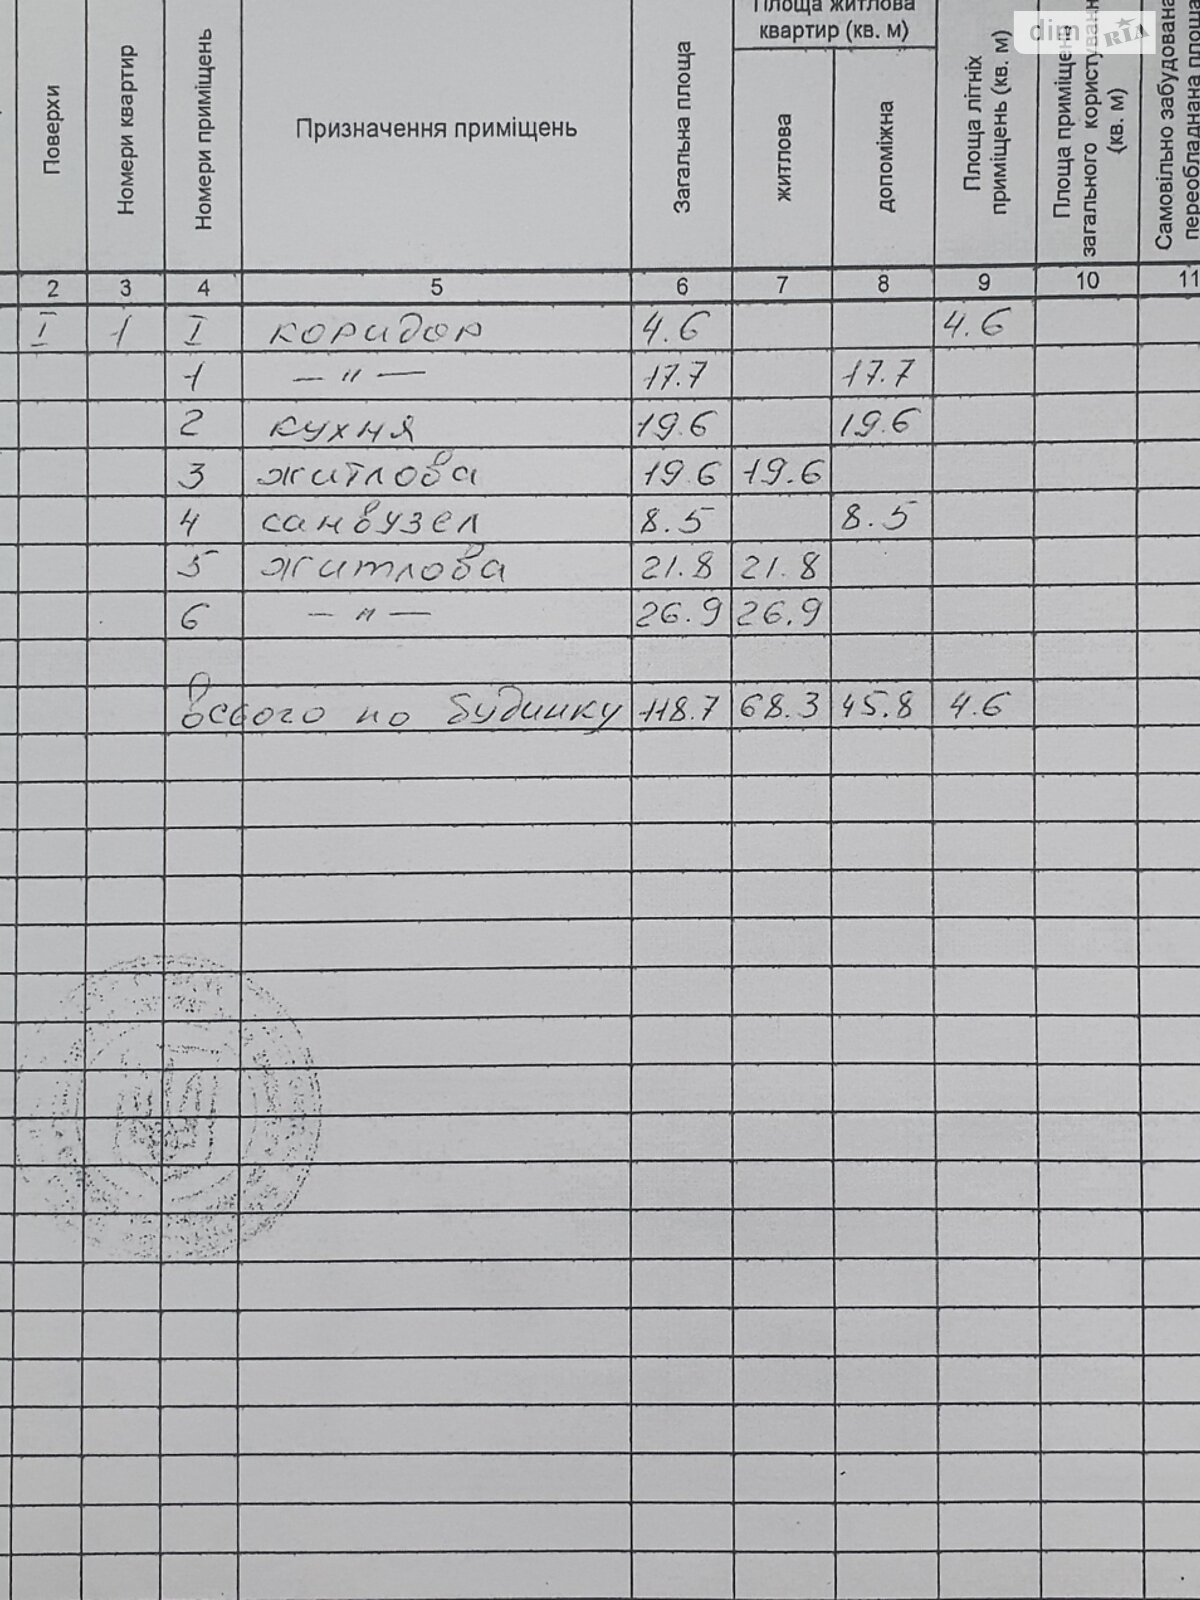 Поверхи
Номери квартир
Номери приміщень
Призначення приміщень
Загальна площа
Площа житлова
квартир (кв. м)
житлова
допоміжна
Площа літніх
приміщень (кв. м)
Площа приміщень
загального користування
(кв. м)
Самовільно забудована
переобладнана площа
dim RIA
2 3 4 5 6 7 8 9 10 11
I 1 I коридор 4.6 4.6
1 — " — 17.7 17.7
2 кухня 19.6 19.6
3 житлова 19.6 19.6
4 санвузел 8.5 8.5
5 житлова 21.8 21.8
6 — " — 26.9 26.9
всього по будинку 118.7 68.3 45.8 4.6